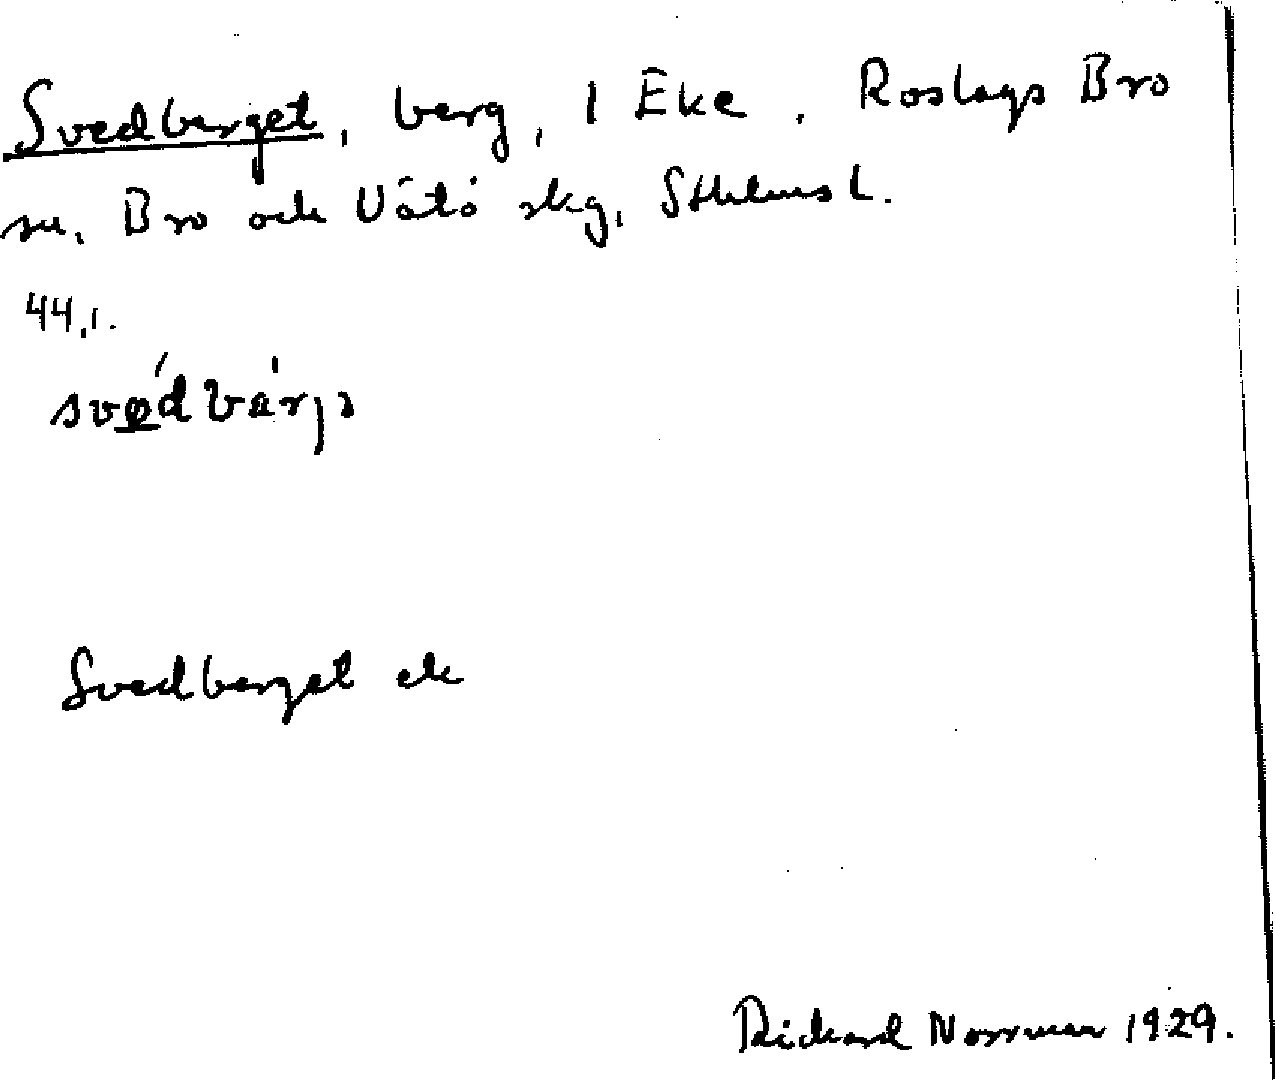 Svedberget, berg, 1 Eke. Roslags Bro
sn. Bro och Vätö skg, Sthlms l.
44,1.
Svedberget ek
Rickard Norrman 1929.